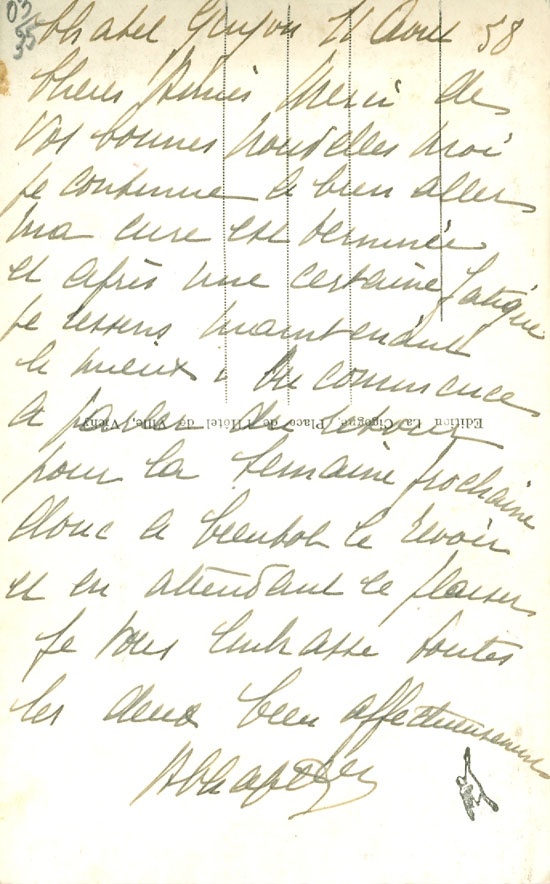 03
35
Chatel Guyon 21 Avril 58
Cheres Amies Merci de
vos bonnes nouvelles moi
je continue a bien aller
ma cure est terminée
et après une certaine fatigue
je ressens maintenant
le mieux : on commence
a parler du retour
Edition La Cigogne, Place de l'Hôtel de Ville, Vichy
pour la semaine prochaine
donc a bientot le revoir
et en attendant ce plaisir
je vous embrasse toutes
les deux bien affectueusement